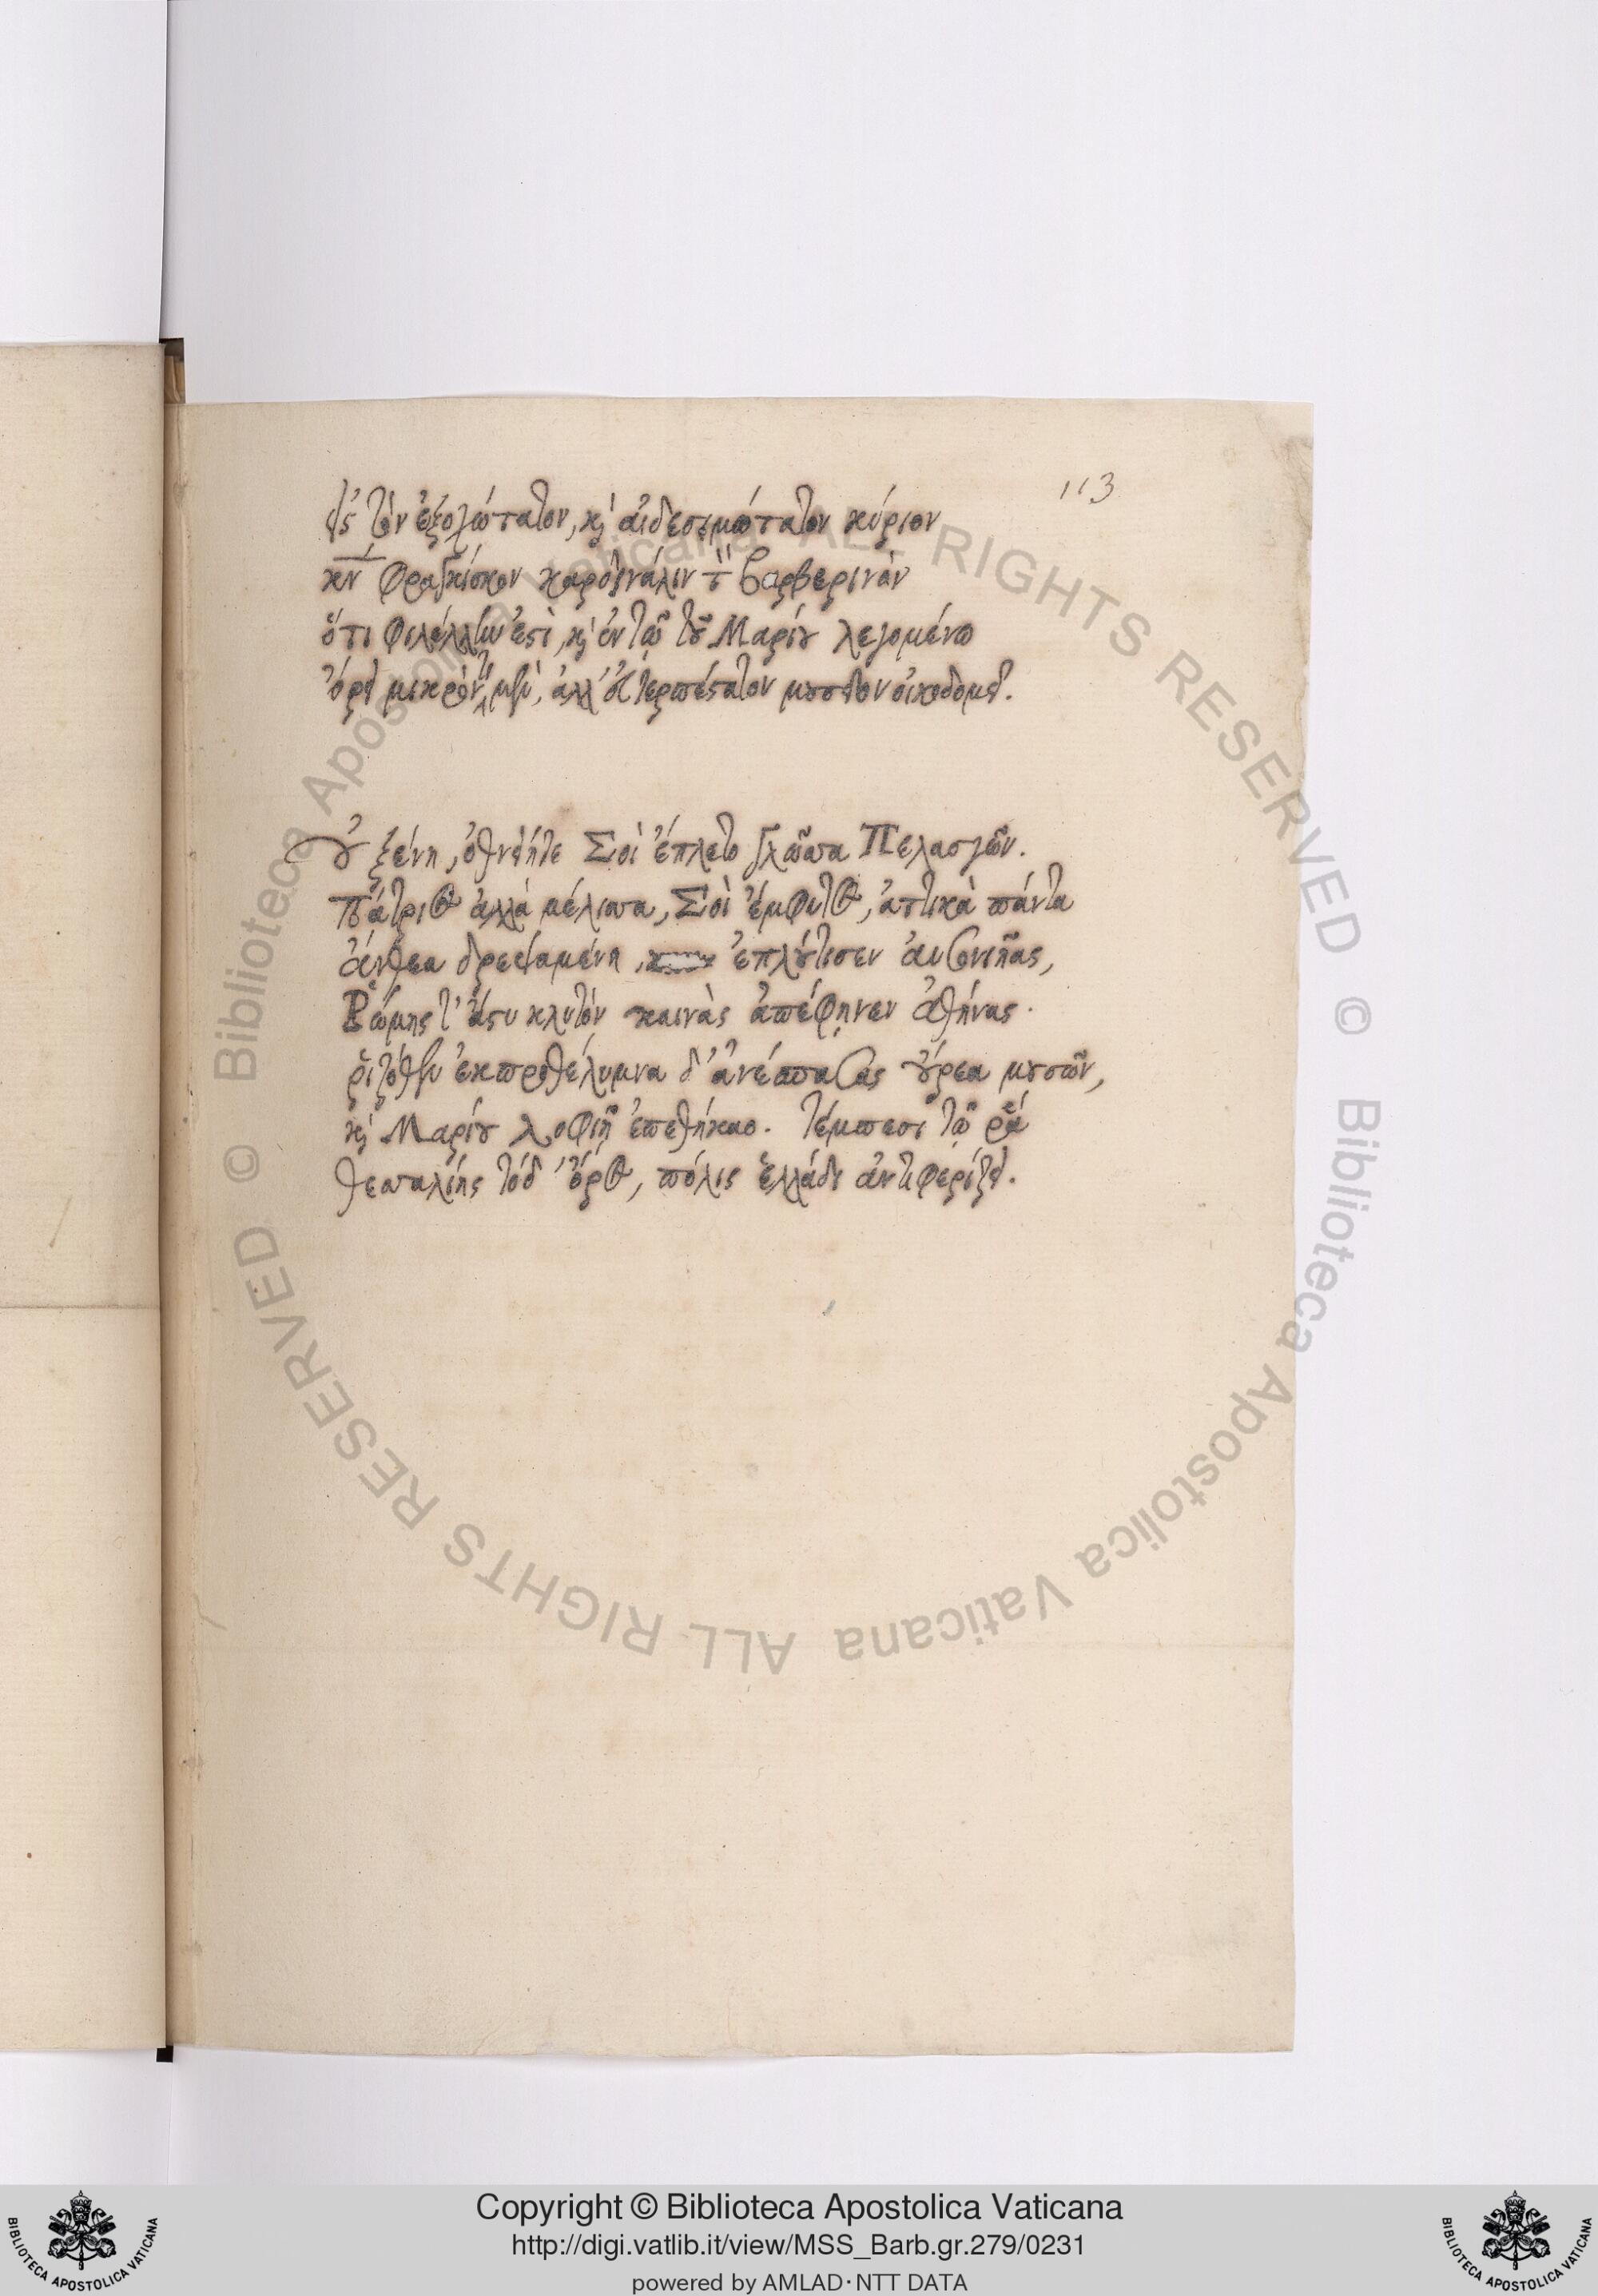 113
εἰς τὸν ἐξοχώτατον, καὶ αἰδεσιμώτατον κύριον
κύν Φραγκίσκον καρδηνάλιν τ Βαρβερινὸν
ὅτι Φιλέλλην ἐστὶ, καὶ ἐν τῷ τοῦ Μαρίου λεγομένῳ
ὄρει μικρὸν μὲν, ἀλλ' ἔτι τερπνέστατον μουσεῖον οἰκοδομεῖ.
Οὐ ξείνη, ὀθνείητε Σοὶ ἔπλετο γλῶσσα Πελασγῶν.
Πάτριος ἀλλὰ μέλισσα, Σοὶ ἔμφυτος, ἀττικὰ πάντα
ἄνθεα δρεψαμένη, ἐπλούτισεν αὐσονιῆας,
Ῥώμης τ' ἄστυ κλυτὸν καινὰς ἀπέφηνεν ἀθήνας.
ῥιζόθεν ἐκπροθέλυμνα δ' ἀνέσπασας οὔρεα μουσῶν,
καὶ Μαρίου λοφιῇ ἐπεθήκαο. Τέμπεσι τῷ ῥά
θεσσαλίης τόδ' ὄρος, πόλις ἑλλάδι ἀντιφερίζει.
Copyright © Biblioteca Apostolica Vaticana
http://digi.vatlib.it/view/MSS_Barb.gr.279/0231
powered by AMLAD·NTT DATA
BIBLIOTECA APOSTOLICA VATICANA
BIBLIOTECA APOSTOLICA VATICANA
© Biblioteca Apostolica Vaticana ALL RIGHTS RESERVED
© Biblioteca Apostolica Vaticana ALL RIGHTS RESERVED